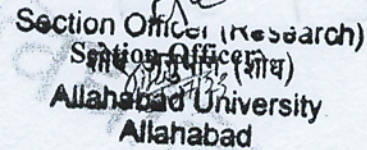 Section Officer (Research)
Section Officer
(शोध)
Allahabad University
Allahabad